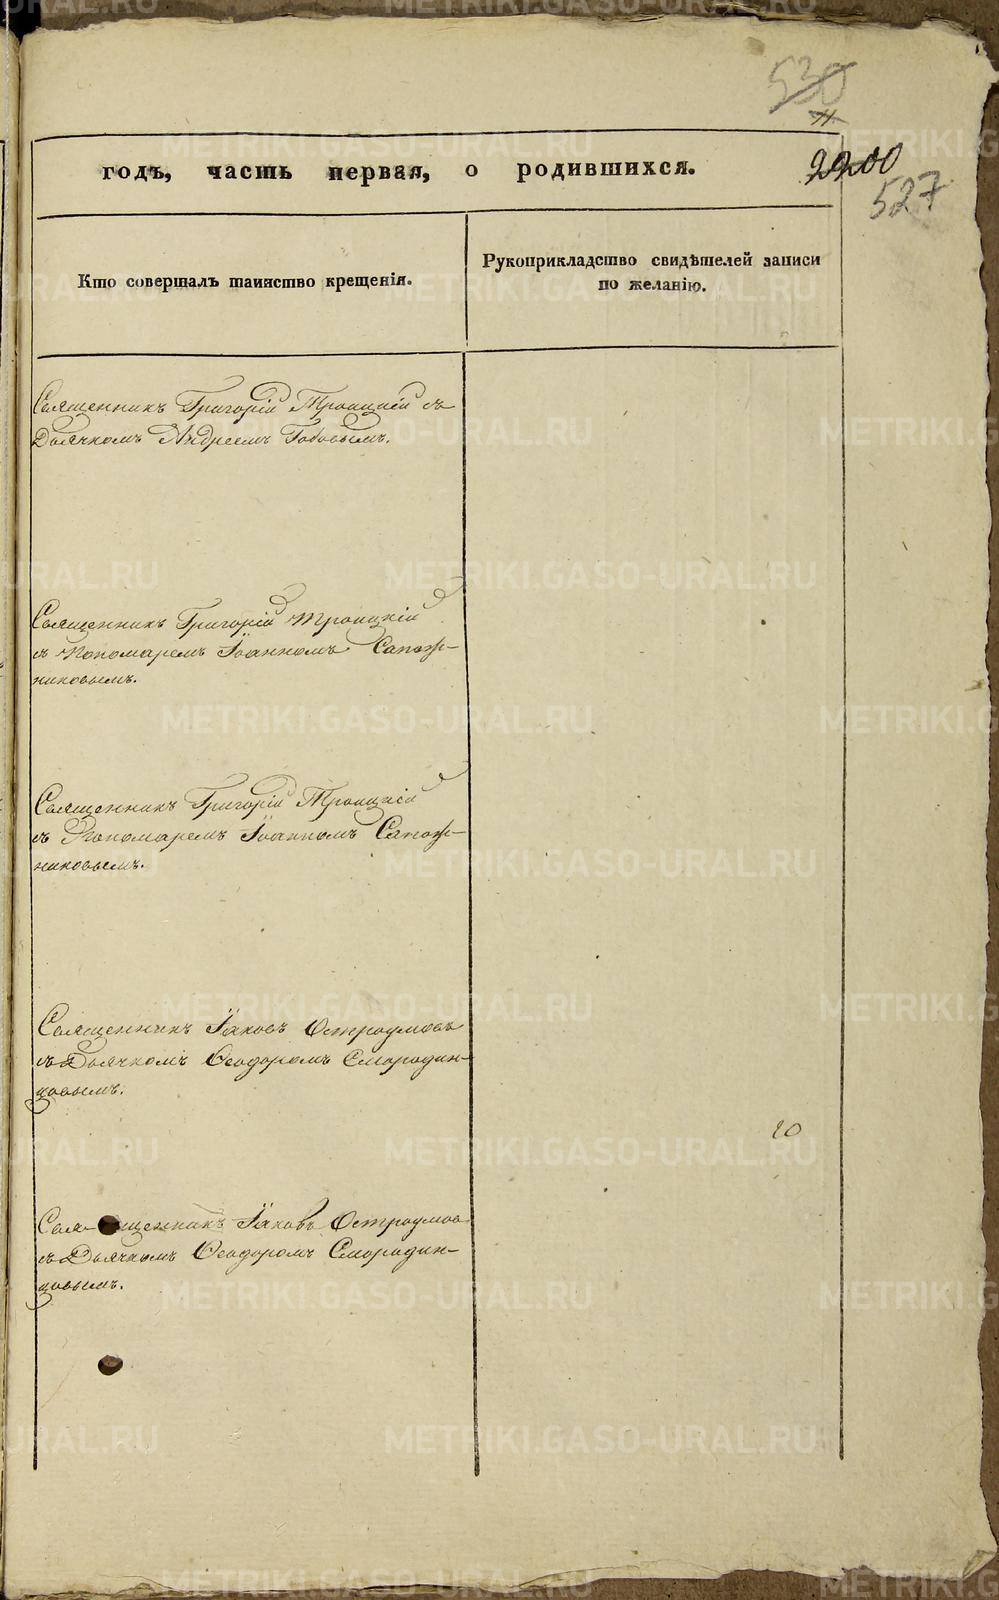 530
11
годъ, часть первая, о родившихся.
527
Кто совершалъ таинство крещенія.
Рукоприкладство свидѣтелей записи
по желанію.
Священникъ Григорій Троицкій съ
Дьячкомъ Андреемъ
Священникъ Григорій Троицкій
съ Пономаремъ Іоанномъ Сапож-
никовымъ.
Священникъ Григорій Троицкій
съ Пономаремъ Іоанномъ Сапож-
никовымъ.
Священникъ Іаковъ Остроумовъ
съ Дьячкомъ Ѳеодоромъ Смородин-
цовымъ.
20
Свя-щенникъ Іаковъ Остроумовъ
съ Дьячкомъ Ѳеодоромъ Смородин-
цовымъ.
METRIKI.GASO-URAL.RU